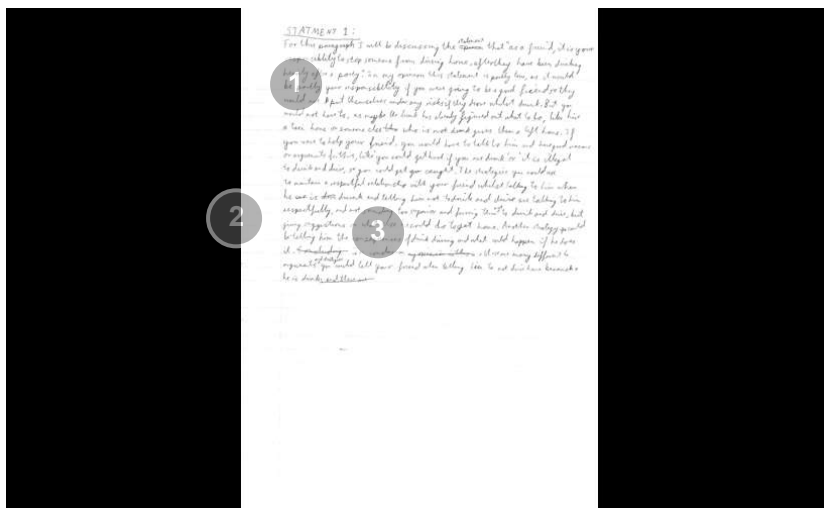 STATMENT 1:
For this paragraph I will be discussing the statement that "as a friend, it is your
responsiblity to stop someone from driving home, after they have been drinking
at a party". In my opinion this statement is partly true, as it would
be your responsiblity if you were going to be a good friend so they
would not put themselves under any risks if they drove whilst drunk. But you
would not have to, as maybe the drunk has already figured out what to do, like hire
a taxi home or someone else who is not drunk gives them a lift home. If
you were to help your friend, you would have to talk to him and have good reasons
or arguments for this, like "you could get hurt if you are drunk" or "it is illegal
to drink and drive, so you could get caught". The strategies you could use
to maintain a respectful relationship with your friend whilst talking to him when
he is drunk and telling him not to drink and drive are talking to him
respectfully, and not to drink and drive, but
giving suggestions could do to get home. Another strategy you could
be telling him the consequences of drink driving and what could happen if he does
it. there are many different
arguments you could tell your friend when telling him to not drive home because
he is drunk
1
2
3